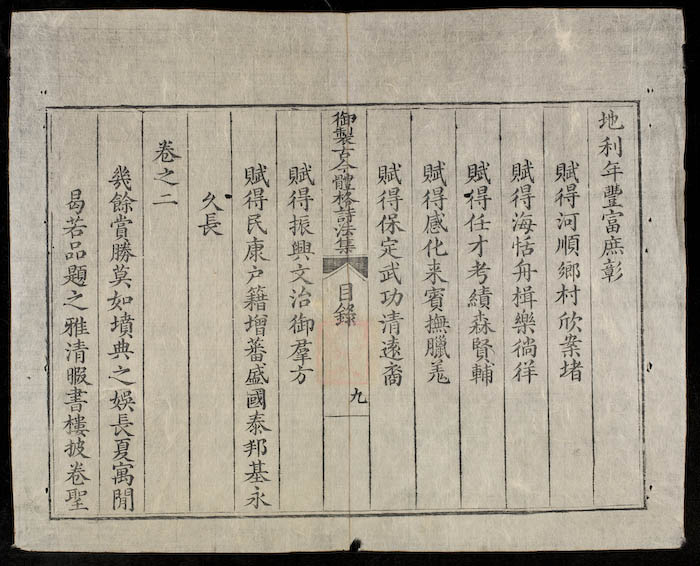 地利年豐富庶彰
賦得河順鄉村欣案堵
賦得海恬舟楫樂徜徉
賦得任才考績森賢輔
賦得感化来賓撫臘羗
賦得保定武功清遠裔
御製古今體格詩法集
目錄
九
賦得振興文治御羣方
賦得民康户籍增蕃盛國泰邦基永
久長
卷之二
幾餘賞勝莫如墳典之娛長夏寓閒
曷若品題之雅清暇書樓披卷聖